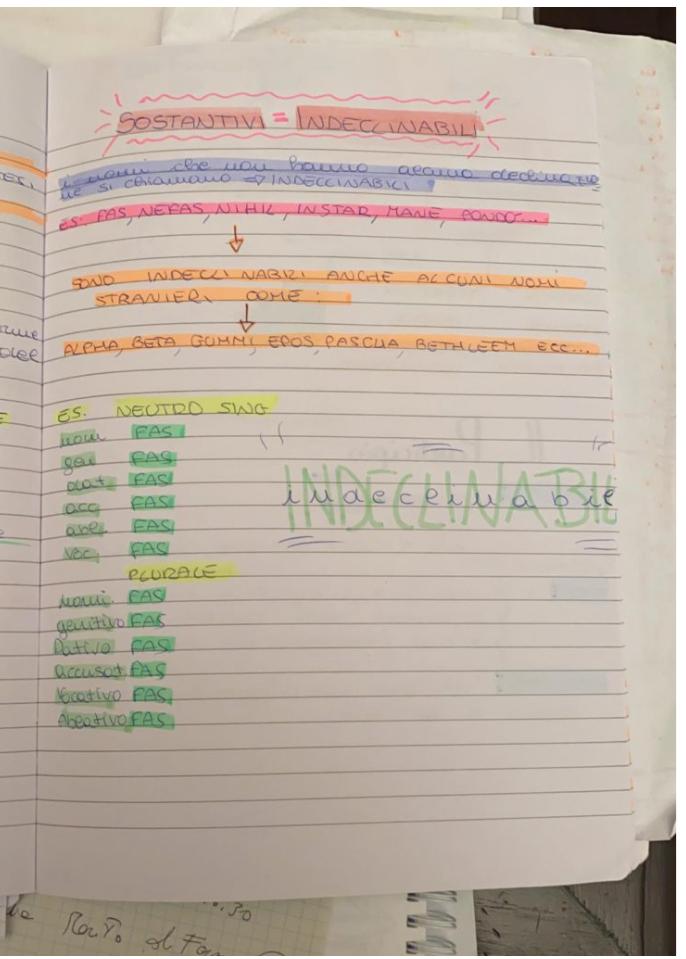 SOSTANTIVI = INDECLINABILI
i nomi che non hanno alcuna declinazio
ne si chiamano ⇒ INDECLINABILI
ES: FAS, NEFAS, NIHIL, INSTAR, MANE, PONDO....
↓
SONO INDECLINABILI ANCHE ALCUNI NOMI
STRANIERI COME :
↓
ALPHA, BETA, GUMMI, EPOS, PASCHA, BETHLEEM ECC...
ES: NEUTRO SING
nom FAS
gen FAS
dat FAS
acc FAS
abl FAS
voc FAS
INDECLINABIL
indeclinabil
PLURALE
nomi. FAS
genitivo FAS
Dativo FAS
accusat FAS
Vocativo FAS
Ablativo FAS